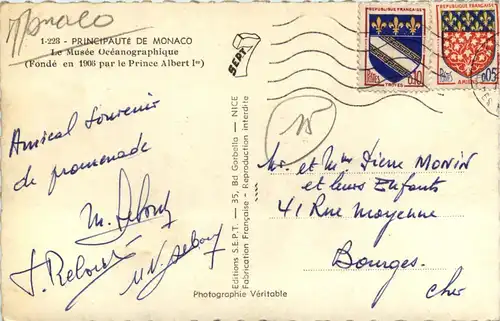 Monaco
1-228 - PRINCIPAUTÉ DE MONACO
Le Musée Océanographique
(Fondé en 1906 par le Prince Albert Ier)
SEPT
Amical Souvenir
de promenade
Editions S.E.P.T. — 35, Bd Gorbella — NICE
Fabrication Française - Reproduction interdite
Photographie Véritable
REPUBLIQUE FRANÇAISE
POSTES
TROYES
0,10
REPUBLIQUE FRANÇAISE
POSTES
AMIENS
0,05
15
Mr. et Mme Pierre MONIN
et leurs Enfants
41 Rue Moyenne
Bourges.
Cher